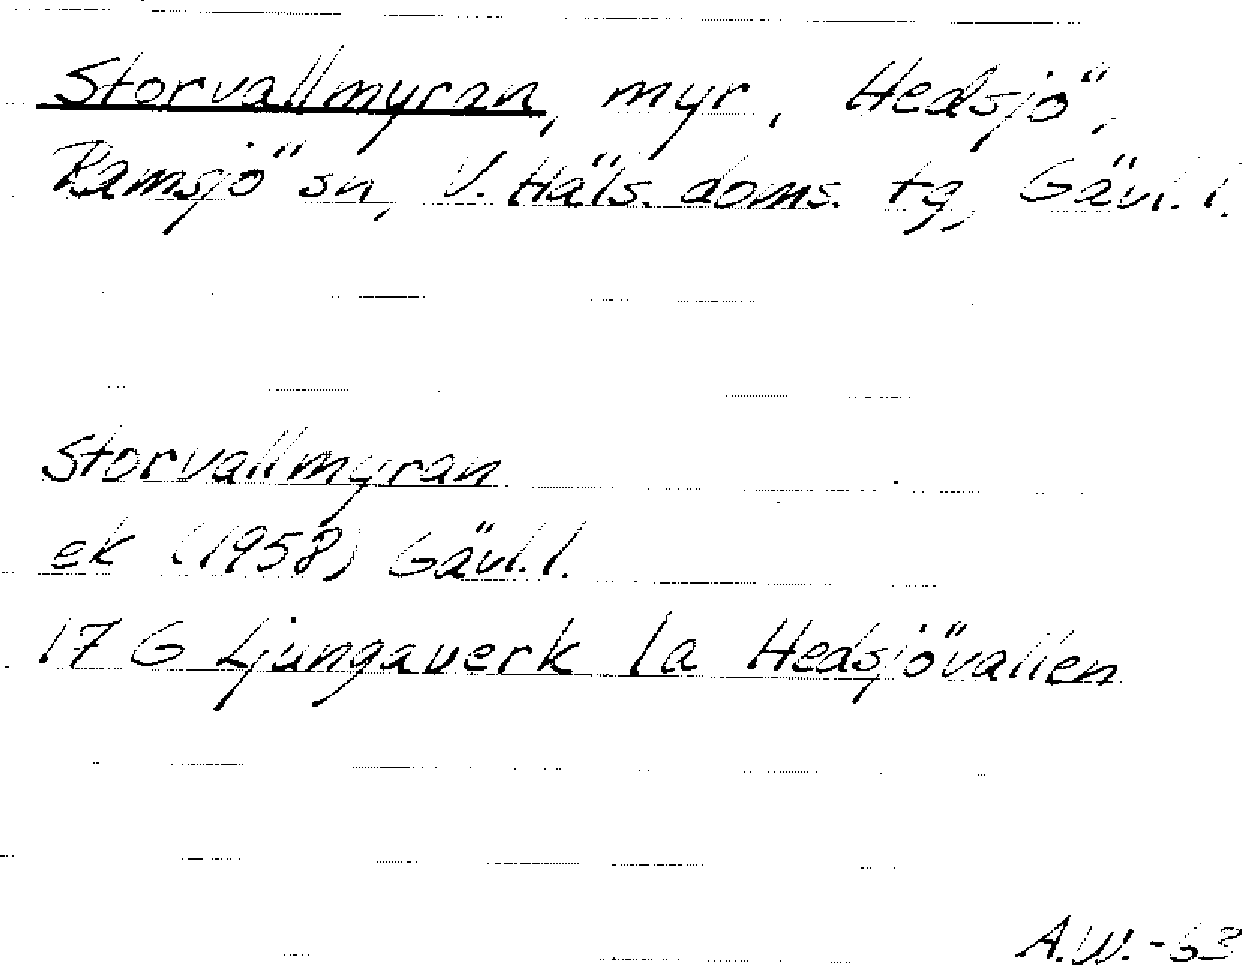 Storvallmyran, myr, Hedsjö,
Ramsjö sn, V. Häls. doms. tg, Gävl. l.
Storvallmyran
ek (1958) Gävl. l.
17 G Ljungaverk 1a Hedsjövallen
A.W. -63